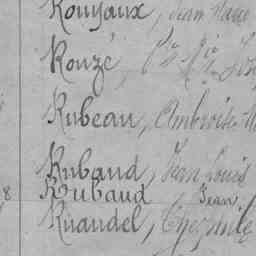 Rouyaux, Jean Marie
Rouzé,
Rubeau, Ambroise
Rubaud, Jean Louis
8 Rubaud Jean
Ruandel,